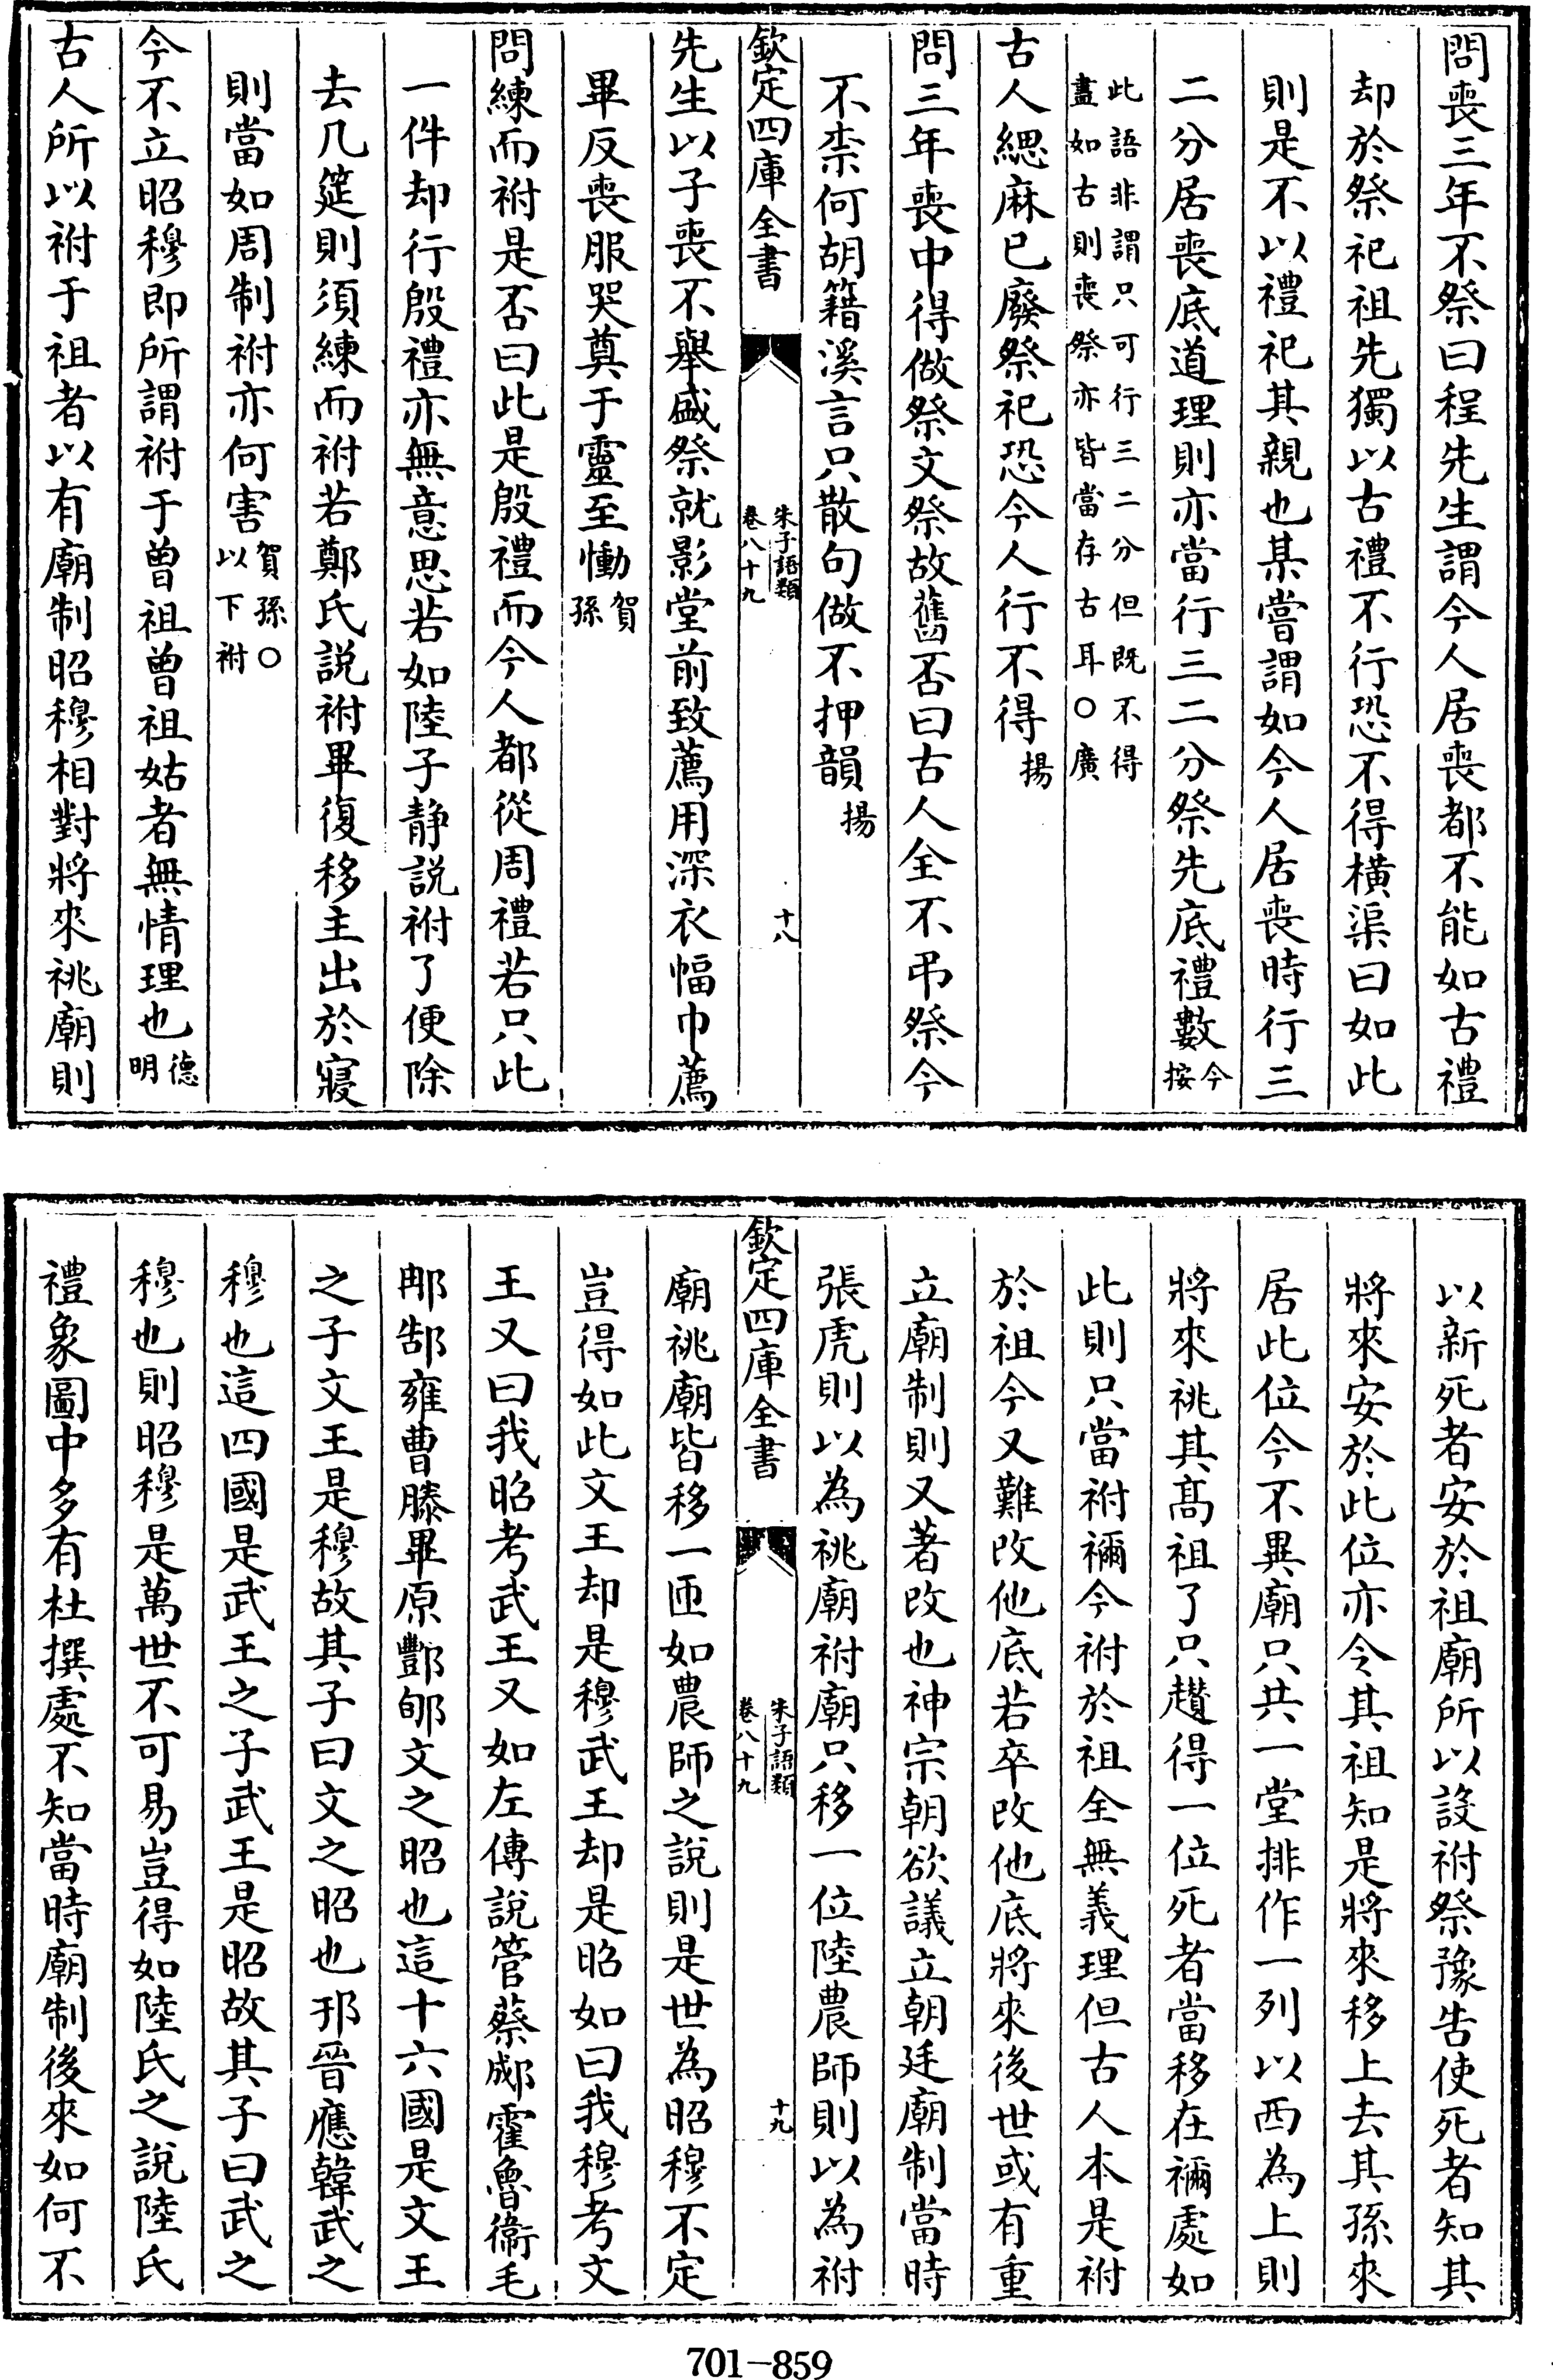 問喪三年不祭曰程先生謂今人居喪都不能如古禮
却於祭祀祖先獨以古禮不行恐不得橫渠曰如此
則是不以禮祀其親也某嘗謂如今人居喪時行三
二分居喪底道理則亦當行三二分祭先底禮數今按
此語非謂只可行三二分但既不得
盡如古則喪祭亦皆當存古耳○廣
古人緦麻已廢祭祀恐今人行不得揚
問三年喪中得做祭文祭故舊否曰古人全不弔祭今
不柰何胡籍溪言只散句做不押韻揚
欽定四庫全書
朱子語類
卷八十九
十八
先生以子喪不舉盛祭就影堂前致薦用深衣幅巾薦
畢反喪服哭奠于靈至慟賀孫
問練而祔是否曰此是殷禮而今人都從周禮若只此
一件却行殷禮亦無意思若如陸子静説祔了便除
去几筵則須練而祔若鄭氏説祔畢復移主出於寢
則當如周制祔亦何害賀孫○以下祔
今不立昭穆即所謂祔于曽祖曽祖姑者無情理也德明
古人所以祔于祖者以有廟制昭穆相對將來祧廟則
以新死者安於祖廟所以設祔祭豫告使死者知其
將來安於此位亦令其祖知是將來移上去其孫來
居此位今不異廟只共一堂排作一列以西為上則
將來祧其髙祖了只趲得一位死者當移在禰處如
此則只當祔禰今祔於祖全無義理但古人本是祔
於祖今又難改他底若卒改他底將來後世或有重
立廟制則又著改也神宗朝欲議立朝廷廟制當時
張虎則以為祧廟祔廟只移一位陸農師則以為祔
欽定四庫全書
朱子語類
卷八十九
十九
廟祧廟皆移一匝如農師之說則是世為昭穆不定
豈得如此文王却是穆武王却是昭如曰我穆考文
王又曰我昭考武王又如左傳說管蔡郕霍魯衞毛
𨚗郜雍曹滕畢原酆郇文之昭也這十六國是文王
之子文王是穆故其子曰文之昭也邘晉應韓武之
穆也這四國是武王之子武王是昭故其子曰武之
穆也則昭穆是萬世不可易豈得如陸氏之說陸氏
禮象圖中多有杜撰處不知當時廟制後來如何不
701—859